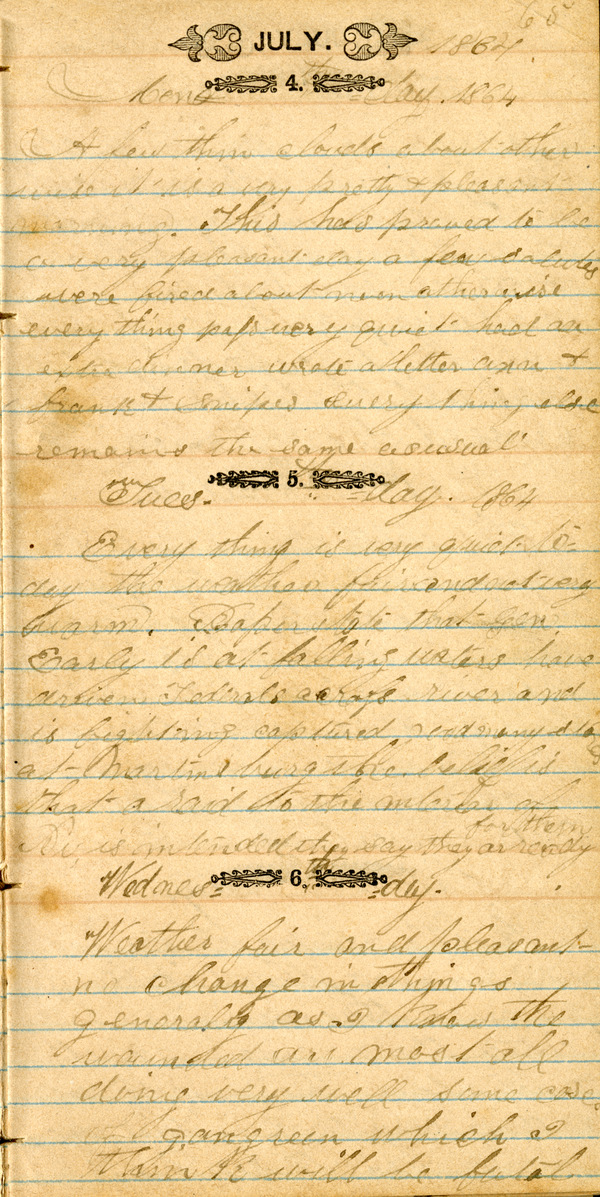 65
JULY. 1864.
4.
Mon th = day. 1864
A few thin clouds about other
wise it is a very pretty & pleasant
morning. This has proved to be
a very pleasant day a few salutes
were fired about noon otherwise
every thing pass very quiet had an
extra dinner wrote a letter ann &
frank & Snipes every thing else
remains the same as usual
5.
Tues- = day. 1864
Every thing is very quiet to-
day the weather fair and not very
warm. Papers state that Gen
Early is at falling waters have
driven Federals across river and
is fighting captured many sto
at Martinsburg the belief is
that a raid to the north of
is intended they say they ar ready
for them
6.
Wednes= th =day.
Weather fair and pleasant
no change in things
generaly as I know the
wounded are most all
doing very well some case
of gangreen which I
think will be fatal